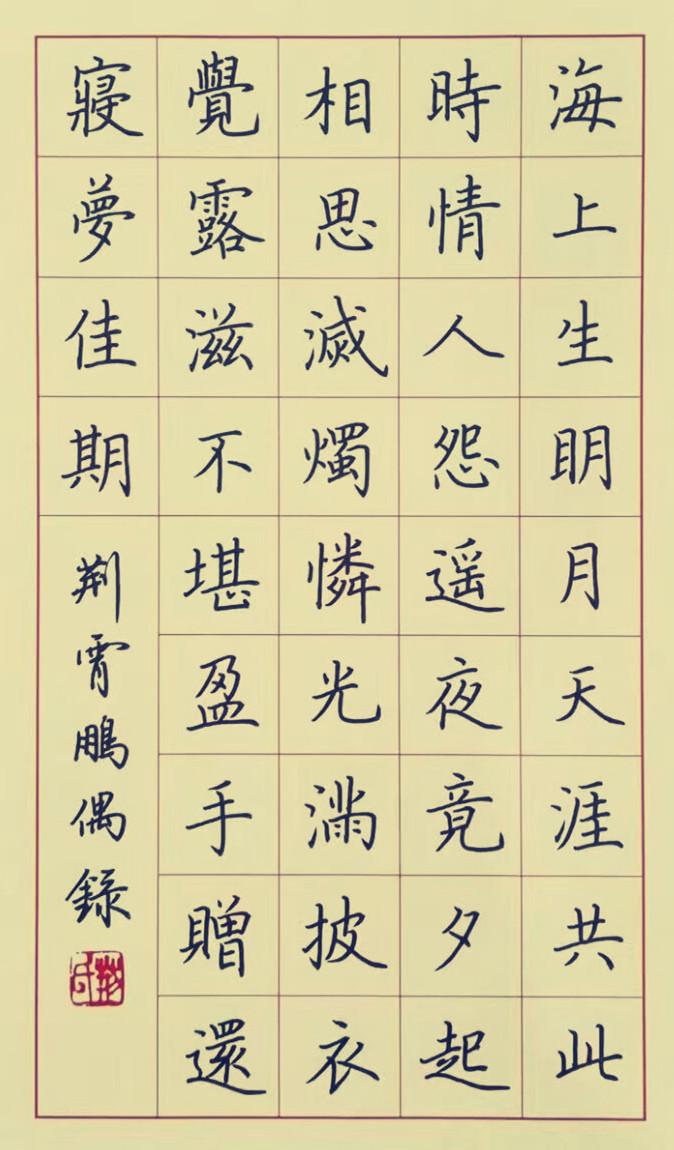 海上生明月天涯共此
時情人怨遥夜竟夕起
相思滅燭憐光滿披衣
覺露滋不堪盈手贈還
寢夢佳期
荆霄鵬偶錄